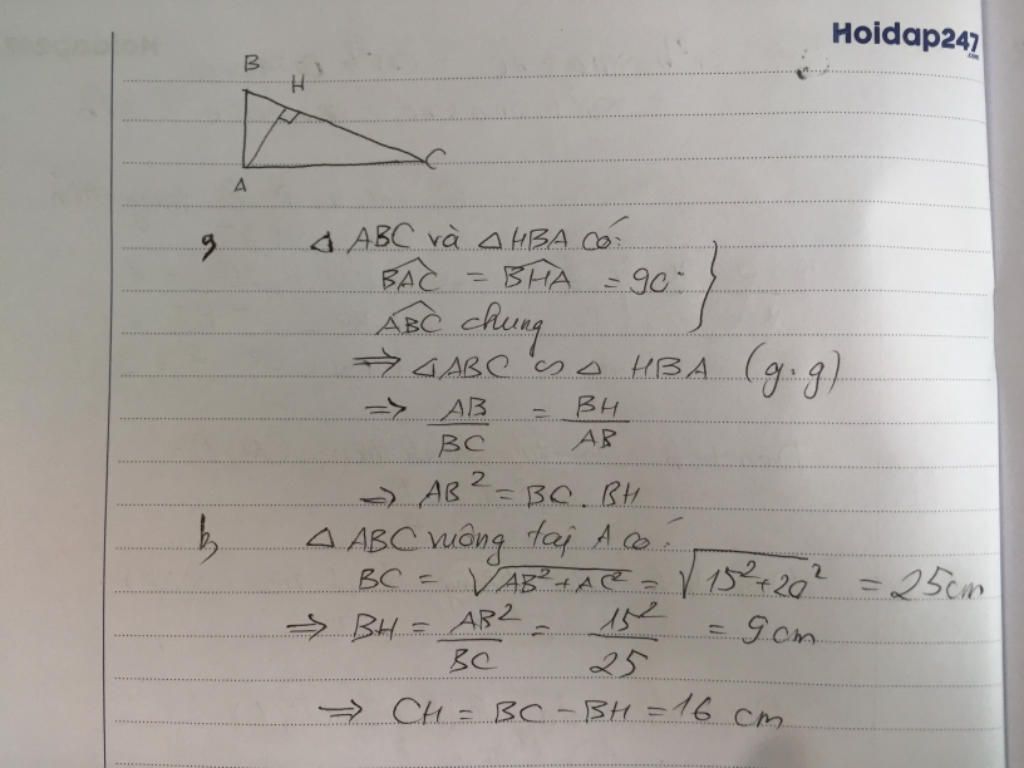 Hoidap247.com
B
H
A
C
a, △ ABC và △ HBA có:
$\widehat{BAC}$ = $\widehat{BHA}$ = 90°
$\widehat{ABC}$ chung
⇒ △ABC ∽ △ HBA (g.g)
⇒ AB/BC = BH/AB
⇒ AB² = BC . BH
b, △ ABC vuông tại A có:
BC = √(AB² + AC²) = √(15² + 20²) = 25cm
⇒ BH = AB²/BC = 15²/25 = 9 cm
⇒ CH = BC − BH = 16 cm